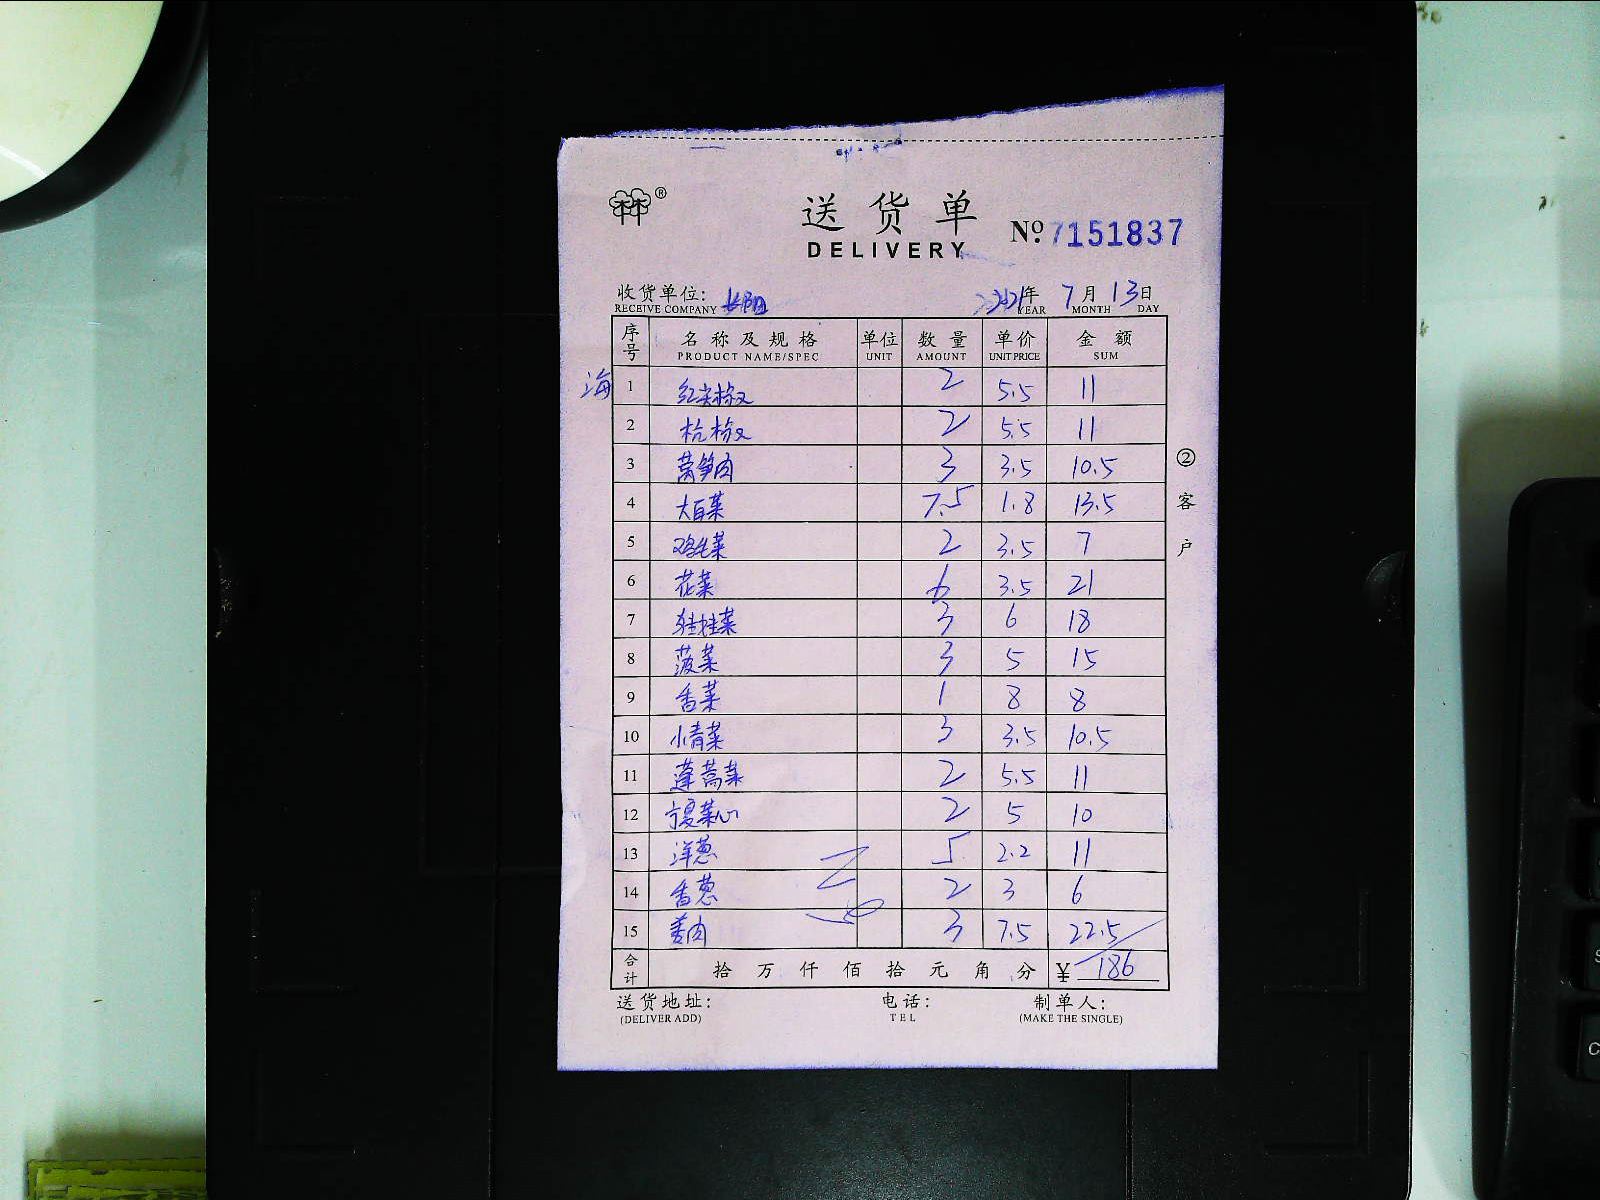 送货单
DELIVERY
No. 7151837
收货单位: 长阳 2021年 7月 13日
RECEIVE COMPANY YEAR MONTH DAY
序号 名称及规格 单位 数量 单价 金额
PRODUCT NAME/SPEC UNIT AMOUNT UNIT PRICE SUM
海 1 红尖椒 2 5.5 11
2 杭椒 2 5.5 11
3 莴笋肉 3 3.5 10.5
4 大白菜 7.5 1.8 13.5
5 鸡毛菜 2 3.5 7
6 花菜 6 3.5 21
7 娃娃菜 3 6 18
8 菠菜 3 5 15
9 香菜 1 8 8
10 小青菜 3 3.5 10.5
11 蓬蒿菜 2 5.5 11
12 菜心 2 5 10
13 洋葱 5 2.2 11
14 香葱 2 3 6
15 姜肉 3 7.5 22.5
合计 拾 万 仟 佰 拾 元 角 分 ¥ 186
送货地址: 电话: 制单人:
(DELIVER ADD) TEL (MAKE THE SINGLE)
② 客户